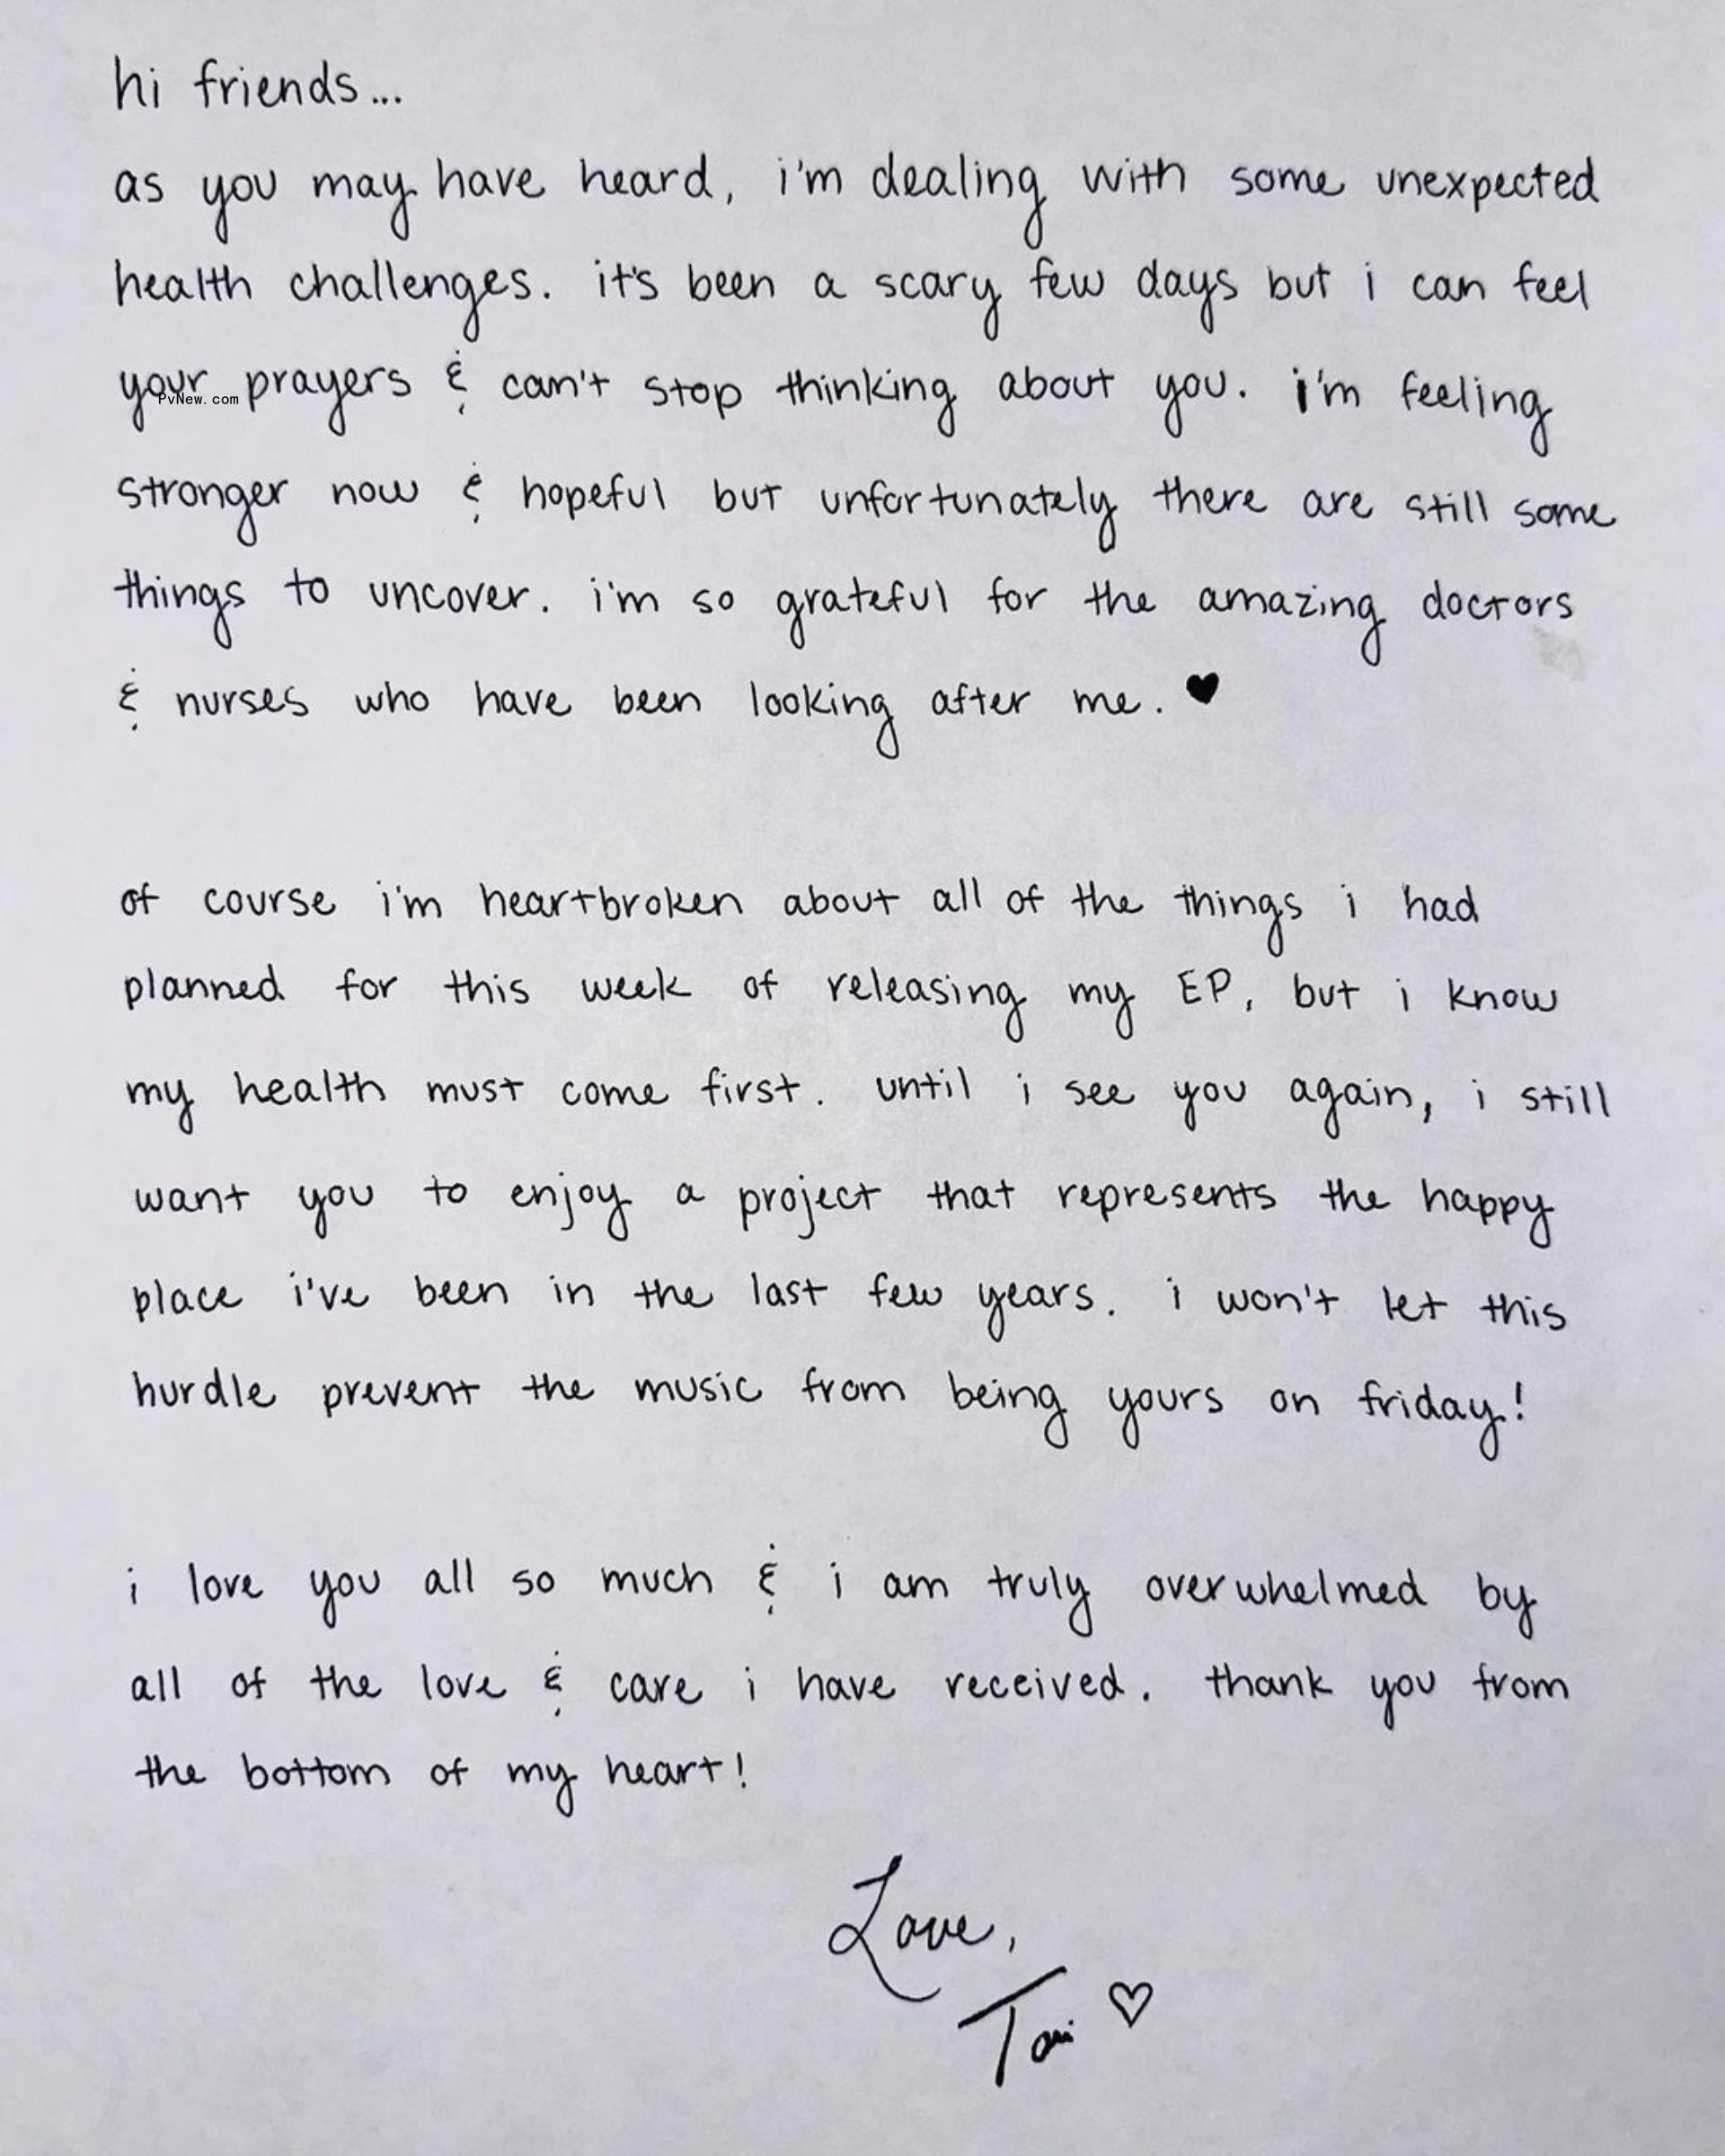 hi friends...
as you may have heard, i'm dealing with some unexpected
health challenges. it's been a scary few days but i can feel
your prayers & can't stop thinking about you. i'm feeling
PvNew.com
stronger now & hopeful but unfortunately there are still some
things to uncover. i'm so grateful for the amazing doctors
& nurses who have been looking after me. ♥
of course i'm heartbroken about all of the things i had
planned for this week of releasing my EP, but i know
my health must come first. until i see you again, i still
want you to enjoy a project that represents the happy
place i've been in the last few years. i won't let this
hurdle prevent the music from being yours on friday!
i love you all so much & i am truly overwhelmed by
all of the love & care i have received. thank you from
the bottom of my heart!
Love,
Tori ♡